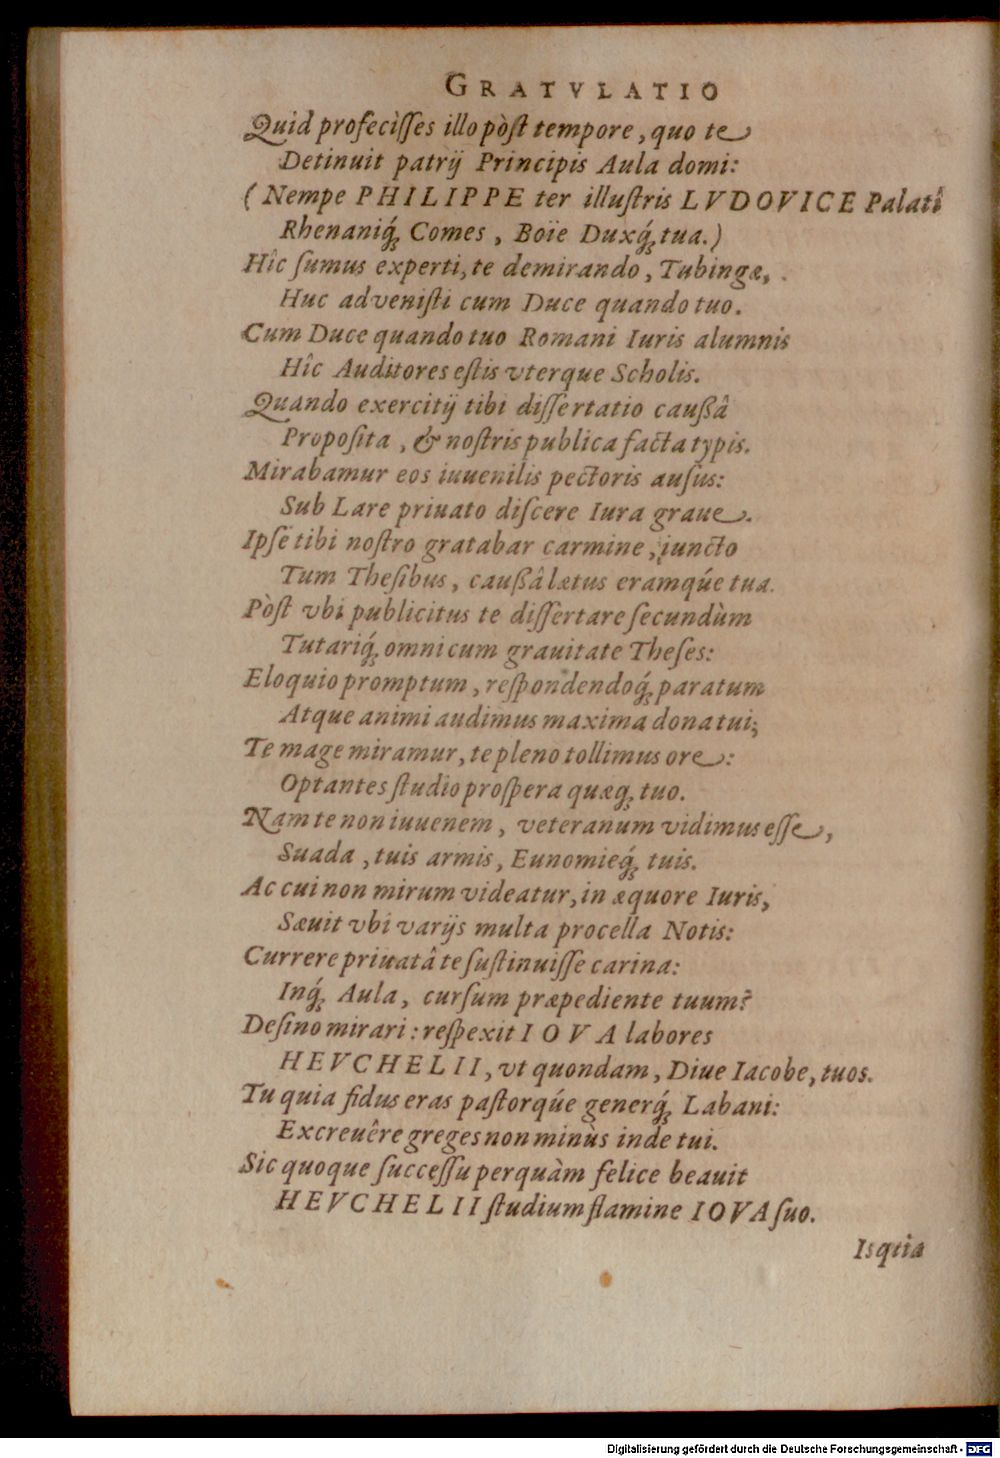 GRATVLATIO
Quid profecìſſes illo pòſt tempore, quo te
Detinuit patrij Principis Aula domi:
(Nempe PHILIPPE ter illuſtris LVDOVICE Palatî
Rhenaniq́; Comes, Boïe Duxq́; tua.)
Hîc ſumus experti, te demirando, Tubingæ,
Huc adveniſti cum Duce quando tuo.
Cum Duce quando tuo Romani Iuris alumnis
Hîc Auditores eſtis vterque Scholis.
Quando exercitij tibi diſſertatio cauſſâ
Propoſita, & noſtris publica facta typis.
Mirabamur eos iuuenilis pectoris auſus:
Sub Lare priuato diſcere Iura graue.
Ipſe tibi noſtro gratabar carmine, iuncto
Tum Theſibus, cauſſâ lætus eramq́ue tua.
Pòſt vbi publicitus te diſſertare ſecundùm
Tutariq́; omni cum grauitate Theſes:
Eloquio promptum, reſpondendoq́; paratum
Atque animi audimus maxima dona tui;
Te mage miramur, te pleno tollimus ore:
Optantes ſtudio proſpera quæq; tuo.
Nam te non iuuenem, veteranum vidimus eſſe,
Suada, tuis armis, Eunomieq́; tuis.
Ac cui non mirum videatur, in æquore Iuris,
Sæuit vbi varijs multa procella Notis:
Currere priuatâ te ſuſtinuiſſe carina:
Inq́; Aula, curſum præpediente tuum?
Deſino mirari: reſpexit IOVA labores
HEVCHELII, vt quondam, Diue Iacobe, tuos.
Tu quia fidus eras paſtorq́ue generq́; Labani:
Excreuêre greges non minùs inde tui.
Sic quoque ſucceſſu perquàm felice beauit
HEVCHELII ſtudium flamine IOVA ſuo.
Isqtia
Digitalisierung gefördert durch die Deutsche Forschungsgemeinschaft - DFG